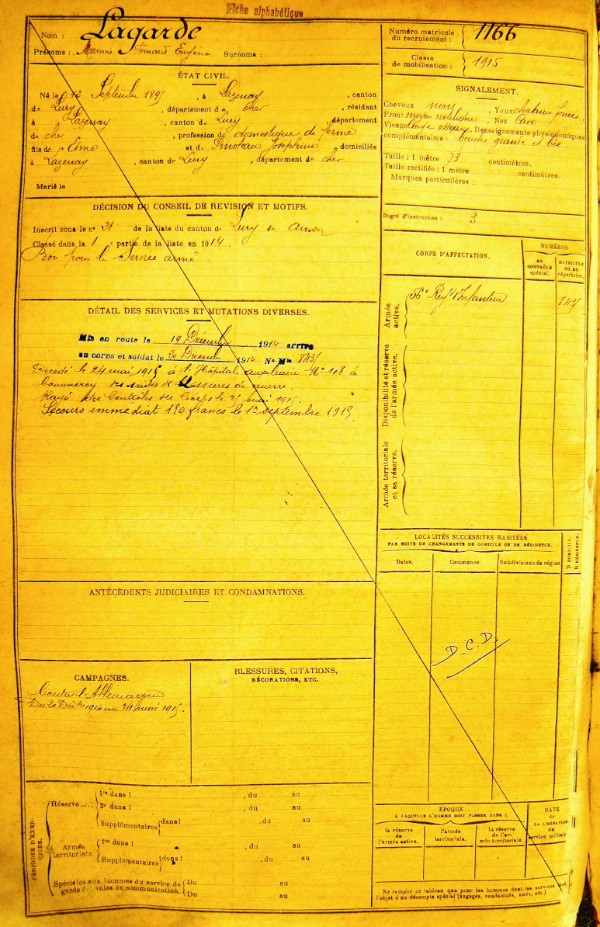 Fiche alphabétique
Nom : Lagarde
Prénoms : Armand Eugène Surnoms :
Numéro matricule du recrutement : 1166
Classe de mobilisation : 1915
ÉTAT CIVIL.
Né le 12 Septembre 189 , à Lazenay , canton
de Lury , département d cher , résidant
à Lazenay , canton de Lury , département
de cher , profession de domestique de ferme
fils de et de Joséphine , domiciliés
à Lazenay , canton de Lury , département d cher
Marié le
SIGNALEMENT.
Cheveux noirs , Yeux
Front moyen , Nez Cave
Visage Renseignements physionomiques
complémentaires : bouche grande
Taille : 1 mètre 73 centimètres.
Taille rectifiée : 1 mètre centimètres.
Marques particulières :
Degré d'instruction : 3
DÉCISION DU CONSEIL DE REVISION ET MOTIFS.
Inscrit sous le n° 21 de la liste du canton de Lury sur Arnon
Classé dans la 1 partie de la liste en 1914.
Bon pour le Service armé
DÉTAIL DES SERVICES ET MUTATIONS DIVERSES.
Mis en route le 19 Décembre 1914 arrivé
au corps et soldat le 20 Décembre 1914 N° Mle
Décédé le 24 mai 1915 à l'Hôpital auxiliaire N° 108 à
Commercy des suites de blessures de guerre.
Rayé des Contrôles du Corps le 25 mai 1915.
Secours immédiat 150 francs le 13 septembre 1919.
CORPS D'AFFECTATION.
NUMÉROS
AU CONTRÔLE SPÉCIAL.
MATRICULE OU AU RÉPERTOIRE.
Armée active.
Régt d'Infanterie
Disponibilité et réserve de l'armée active.
Armée territoriale et sa réserve.
LOCALITÉS SUCCESSIVES HABITÉES
PAR SUITE DE CHANGEMENTS DE DOMICILE OU DE RÉSIDENCE.
Dates. Communes. Subdivisions de région
D. DOMICILE. R. RÉSIDENCE.
D.C.D.
ANTÉCÉDENTS JUDICIAIRES ET CONDAMNATIONS.
CAMPAGNES.
Contre l'Allemagne
Du 20 Décbre 1914 au 24 mai 1915.
BLESSURES, CITATIONS,
DÉCORATIONS, ETC.
PÉRIODES D'EXERCICES.
Réserve
1re dans l , du au
2e dans l , du au
Supplémentaires dans l , du au
Armée territoriale
1re dans l , du au
Supplémentaires dans l , du au
Spéciales aux hommes du service de garde des voies de communication. Du au
Du au
ÉPOQUE
À LAQUELLE L'HOMME DOIT PASSER DANS :
la réserve de l'armée active.
l'armée territoriale.
la réserve de l'armée territoriale
DATE
DE LA LIBÉRATION
du
service militaire
Ne remplir ce tableau que pour les hommes dont les services
l'objet d'un décompte spécial (engagés, condamnés, omis, etc.)